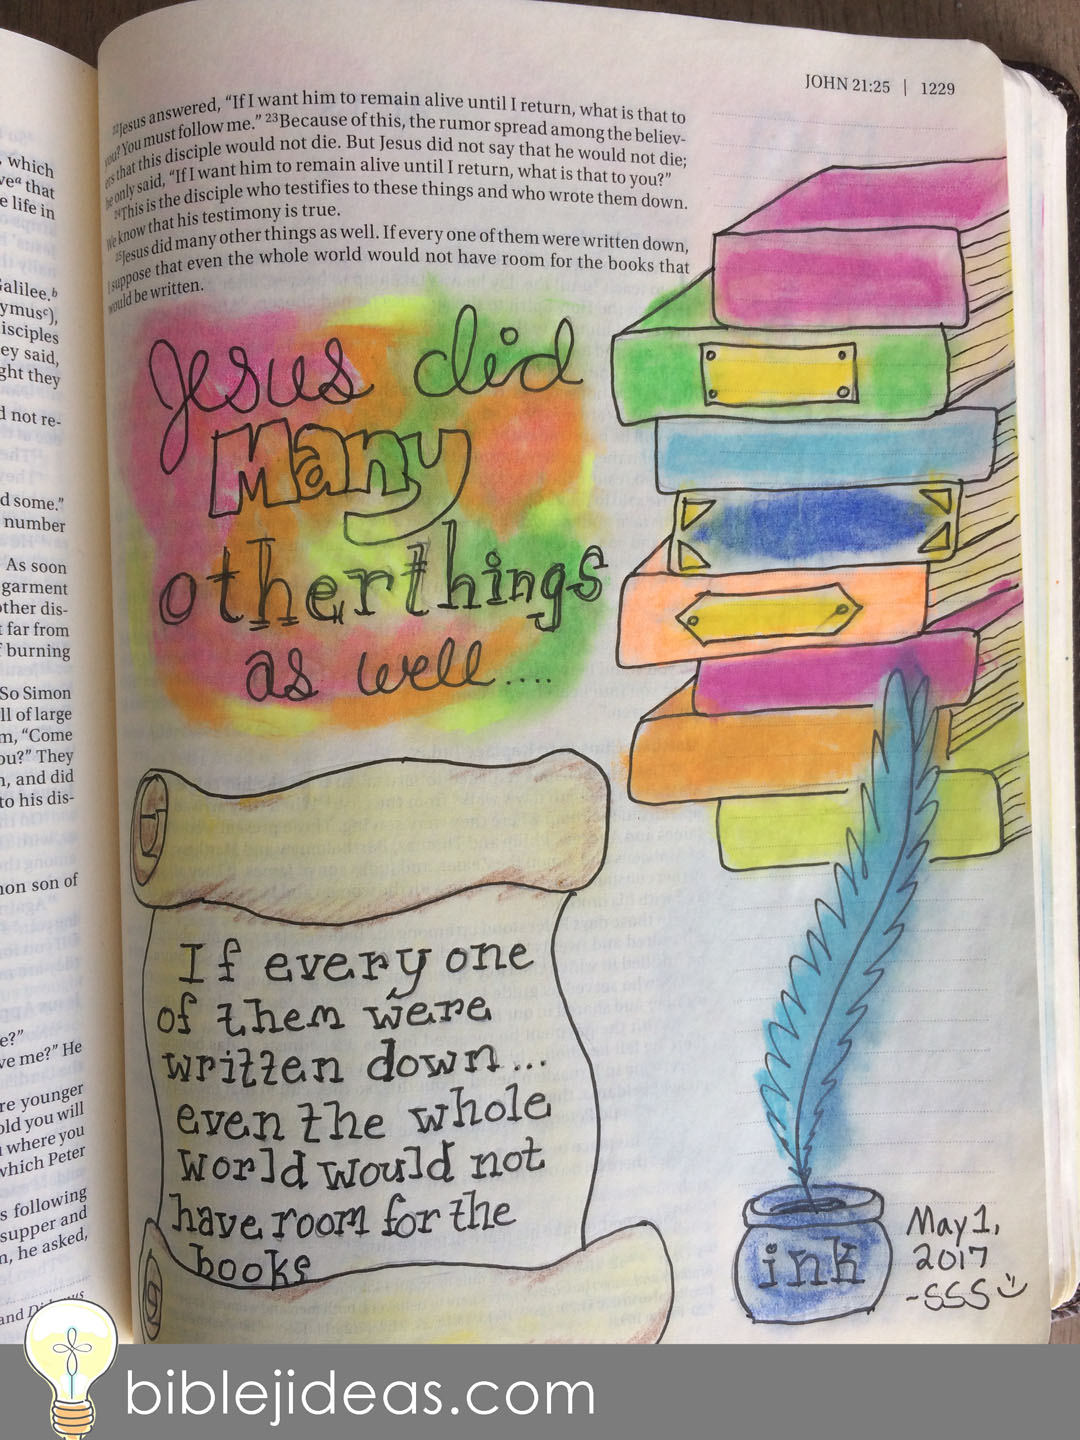 JOHN 21:25 | 1229
²²Jesus answered, “If I want him to remain alive until I return, what is that to
you? You must follow me.” ²³Because of this, the rumor spread among the believ-
ers that this disciple would not die. But Jesus did not say that he would not die;
he only said, “If I want him to remain alive until I return, what is that to you?”
²⁴This is the disciple who testifies to these things and who wrote them down.
We know that his testimony is true.
²⁵Jesus did many other things as well. If every one of them were written down,
I suppose that even the whole world would not have room for the books that
would be written.
, which
that
e life in
Galilee.ᵇ
isciples
ey said,
ght they
d not re-
d some.”
number
As soon
garment
other dis-
t far from
f burning
So Simon
ll of large
m, “Come
ou?” They
n, and did
to his dis-
non son of
e?”
ve me?” He
re younger
old you will
where you
which Peter
s following
supper and
n, he asked,
and
Jesus did
Many
other things
as well....
If every one
of them were
written down...
even the whole
world would not
have room for the
books
ink
May 1,
2017
-SSS
biblejideas.com